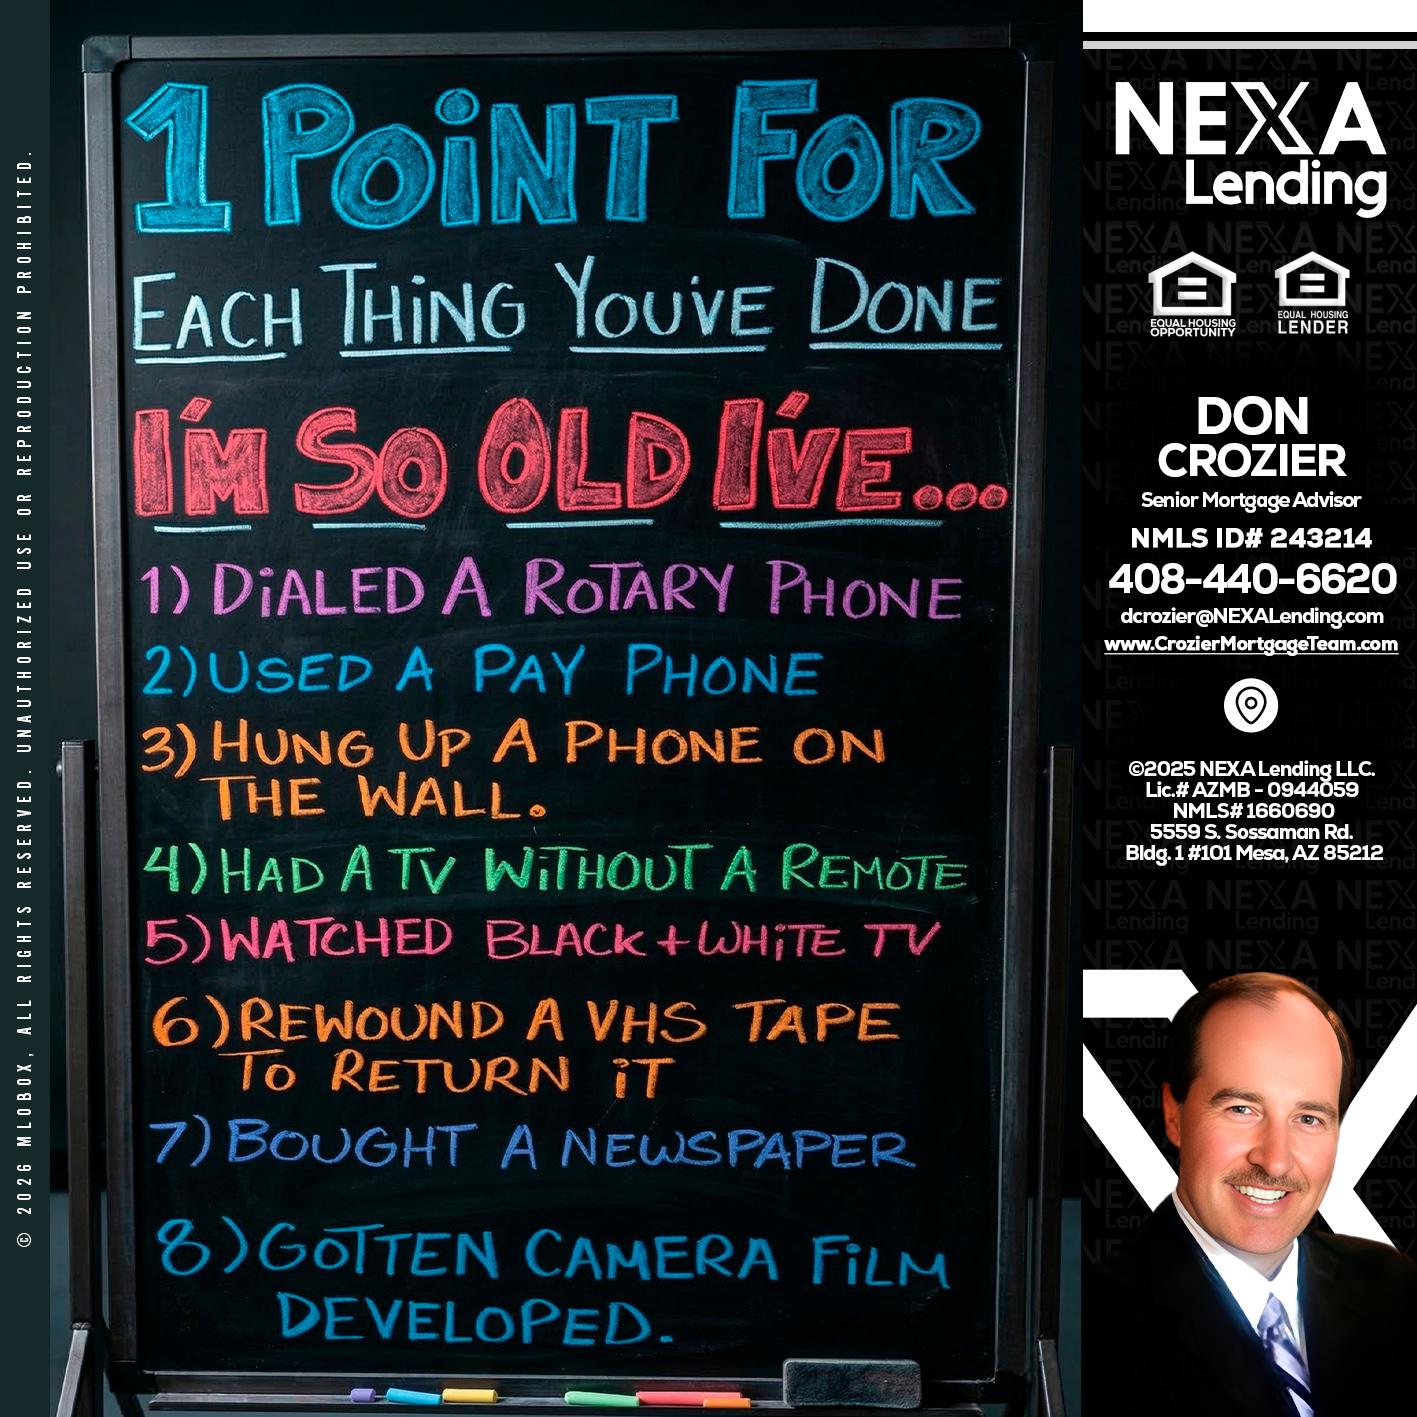 © 2026 MLOBOX, ALL RIGHTS RESERVED. UNAUTHORIZED USE OR REPRODUCTION PROHIBITED.
1 POiNT FOR
EACH THiNG YOU'VE DONE
I'M SO OLD I'VE...
1) DiALED A ROTARY PHONE
2) USED A PAY PHONE
3) HUNG UP A PHONE ON
THE WALL.
4) HAD A TV WiTHOUT A REMOTE
5) WATCHED BLACK + WHiTE TV
6) REWOUND A VHS TAPE
TO RETURN iT
7) BOUGHT A NEWSPAPER
8) GOTTEN CAMERA FiLM
DEVELOPED.
NEXA
Lending
EQUAL HOUSING
OPPORTUNITY
EQUAL HOUSING
LENDER
DON
CROZIER
Senior Mortgage Advisor
NMLS ID# 243214
408-440-6620
dcrozier@NEXALending.com
www.CrozierMortgageTeam.com
©2025 NEXA Lending LLC.
Lic.# AZMB - 0944059
NMLS# 1660690
5559 S. Sossaman Rd.
Bldg. 1 #101 Mesa, AZ 85212